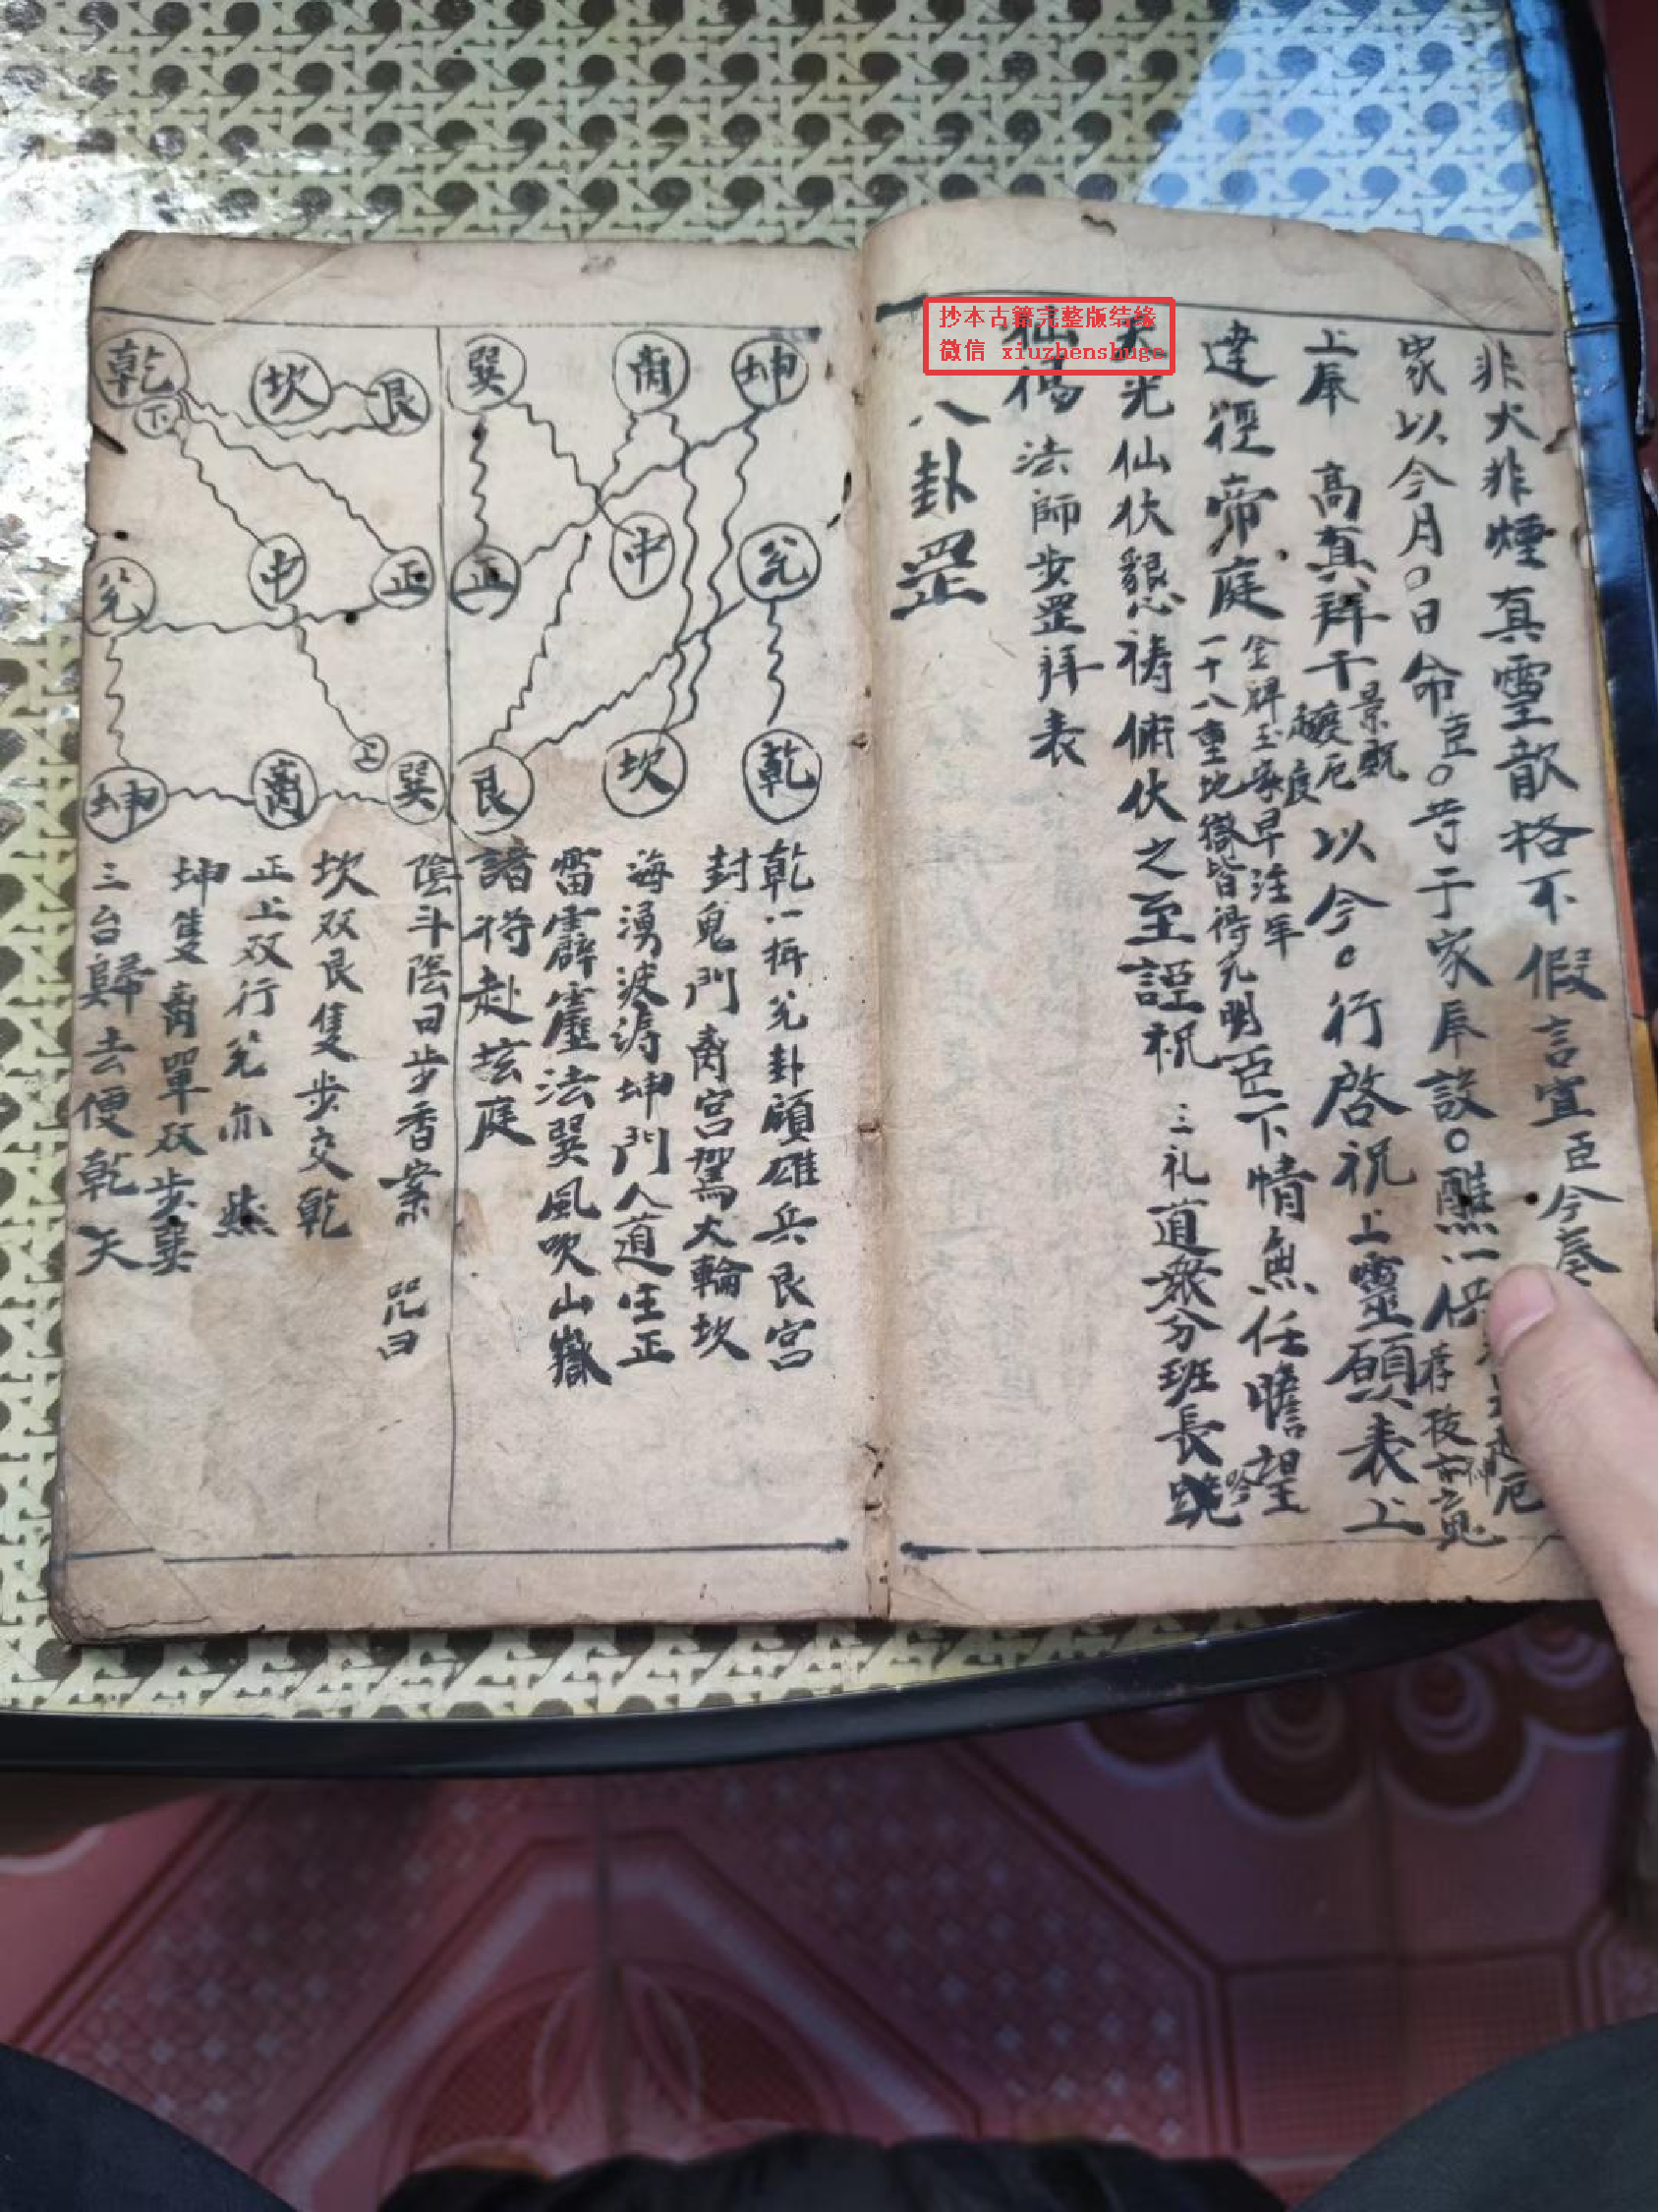 抄本古籍完整版结缘
微信 xiuzhenshuge
非火非煙真靈歆格不假言宣臣今奏
家以今月〇日命臣〇等于家庭設〇醮一供
上奉 高真拜干景貺以今〇行啓祝上靈願表上
達徑帝庭
一十八重地獄皆得光明臣下情無任瞻望
光仙伏懇禱俯伏之至謹祝 三礼道衆分班長跪
法師步罡拜表
八卦罡
坤 離 巽
兌 中 正
乾 坎 艮
乾一撫兌卦領雄兵艮宮
封鬼門離宮駕火輪坎
海湧波濤坤門人道生正
雷霹靂法巽風吹山嶽
諸將赴坛庭
艮 坎 乾
下
正 中 兌
上
巽 離 坤
陰斗陰日步香案 咒曰
坎双艮隻步交乾
正上双行兌亦然
坤隻離單双步巽
三台歸去便乾天